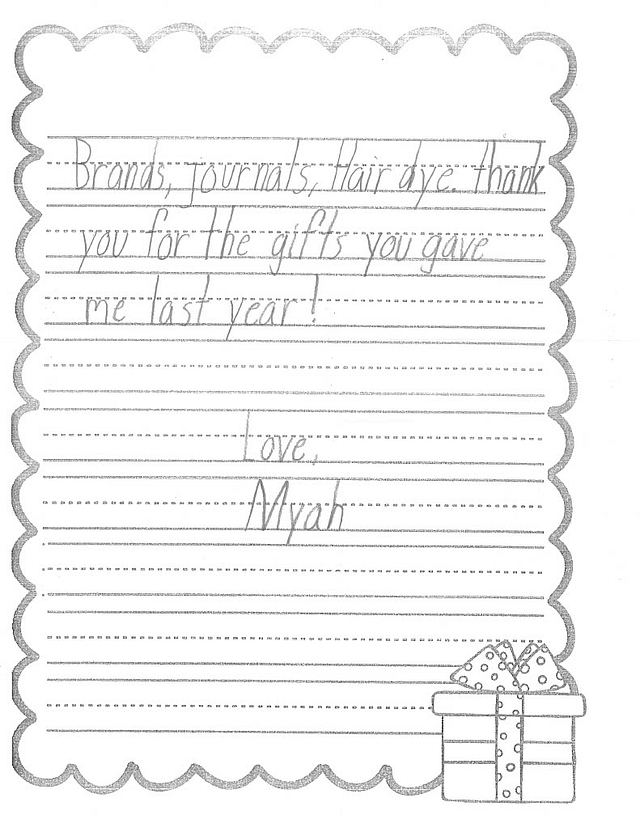 Brands, journals, Hair dye. thank
you for the gifts you gave
me last year!
Love,
Myah